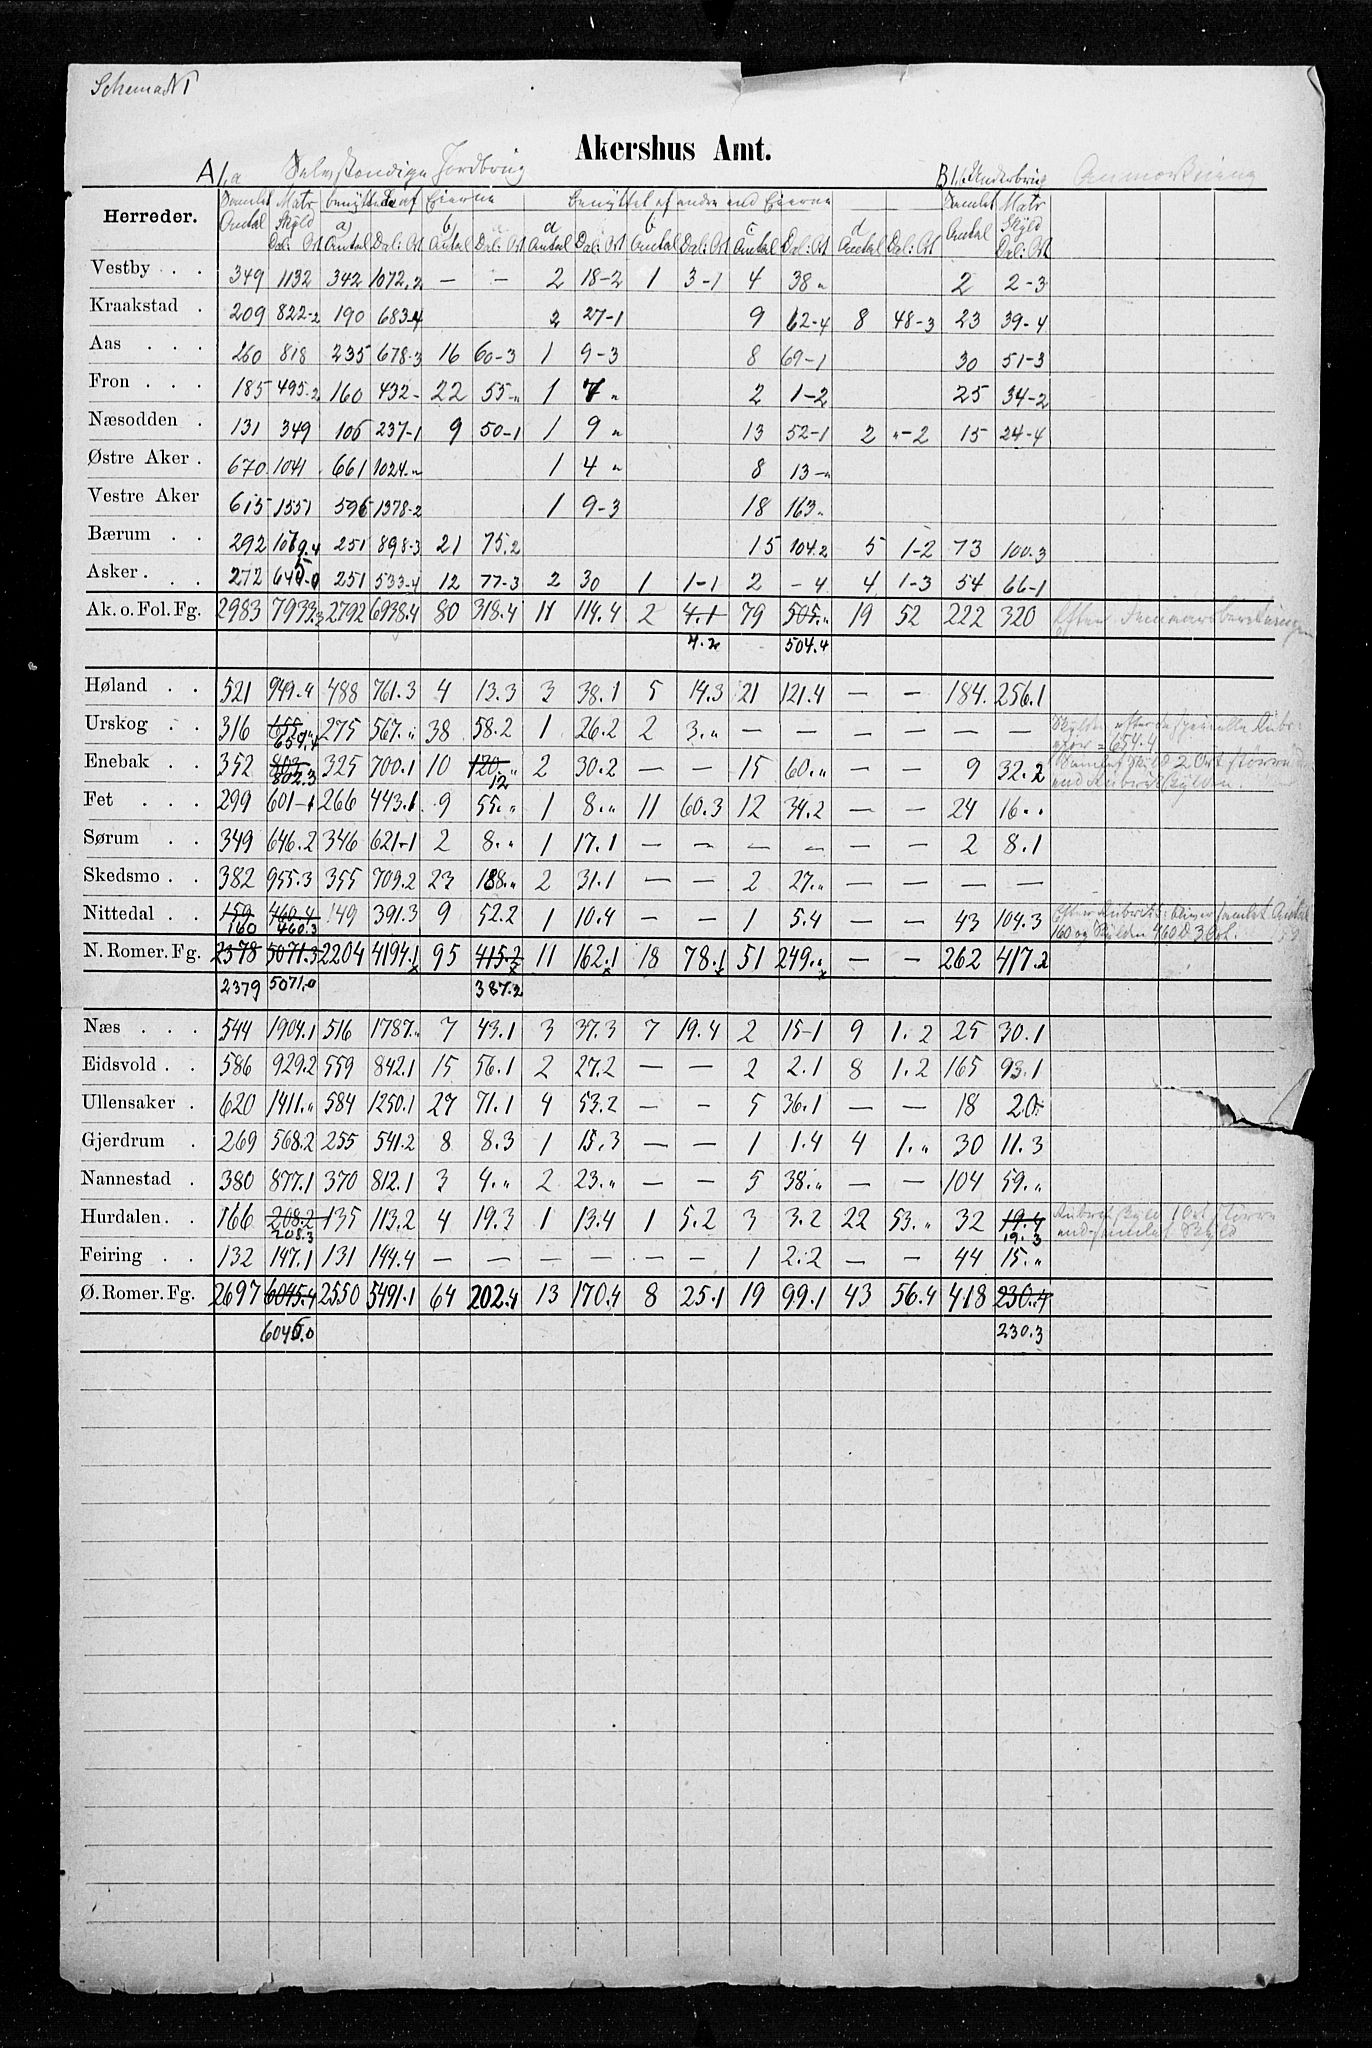 Schema N 1
Akershus Amt.
A 1, a Selvstændige Jordbrug B 1, Underbrug Anmærkning
Herreder. Samlet Antal Matr Skyld Dal: Ort benyttede af Eierne a) Antal Dal: Ort b) Antal Dal: Ort Benyttet af andre end Eierne a Antal Dal: Ort b Antal Dal: Ort c Antal Dal: Ort d Antal Dal: Ort Samlet Antal Matr Skyld Dal: Ort
Vestby . . 349 1132 342 1072.2 — — 2 18-2 1 3-1 4 38„ 2 2-3
Kraakstad . 209 822-2 190 683-4 2 27-1 9 62-4 8 48-3 23 39-4
Aas . . . 260 818 235 678-3 16 60-3 1 9-3 8 69-1 30 51-3
Fron . . . 185 495-2 160 432- 22 55-„ 1 7„ 2 1-2 25 34-2
Næsodden . 131 349 106 237-1 9 50-1 1 9„ 13 52-1 2 „-2 15 24-4
Østre Aker . 670 1041 661 1024-„ 1 4„ 8 13-„
Vestre Aker 615 1551 596 1378-2 1 9-3 18 163„
Bærum . . 292 1079.4 251 898-3 21 75.2 15 104.2 5 1-2 73 100.3
Asker . . . 272 645-0 251 533-4 12 77-3 2 30 1 1-1 2 -4 4 1-3 54 66-1
Ak. o. Fol. Fg. 2983 7933.3 2792 6938.4 80 318.4 11 114.4 2 4.1 79 505.„ 19 52 222 320 Efter Femaarsberetningen
4.2 504.4
Høland . . 521 949.4 488 761.3 4 13.3 3 38.1 5 14.3 21 121.4 — — 184. 256.1
Urskog . . 316 655.„ 275 567.„ 38 58.2 1 26.2 2 3.„ — — — — — — Skylden efter de specielle Rubr-
654.4 = 654.4
Enebak . . 352 803 325 700.1 10 120.„ 2 30.2 — — 15 60.„ — — 9 32.2 Samlet Skyld 2 Ort større
802.3 12 end Rubrikskylden.
Fet . . . 299 601-1 266 443.1 9 55.„ 1 8.„ 11 60.3 12 34.2 — — 24 16..
Sørum . . 349 646.2 346 621-1 2 8.„ 1 17.1 — — — — — — 2 8.1
Skedsmo . . 382 955.3 355 709.2 23 188.„ 2 31.1 — — 2 27.„ — — — —
Nittedal . . 159 460.4 149 391.3 9 52.2 1 10.4 — — 1 5.4 — — 43 104.3 Efter Rubrik: bliver samlet Antal
160 460.3 160 og Skylden 460 D 3 Ort.
N. Romer. Fg. 2378 5071.3 2204 4194.1 95 415.2 11 162.1 18 78.1 51 249.„ — — 262 417.2
2379 5071.0 387.2
Næs . . . 544 1904.1 516 1787.„ 7 43.1 3 37.3 7 19.4 2 15-1 9 1.2 25 30.1
Eidsvold . . 586 929.2 559 842.1 15 56.1 2 27.2 — — 2 2.1 8 1.2 165 93.1
Ullensaker . 620 1411.„ 584 1250.1 27 71.1 4 53.2 — — 5 36.1 — — 18 20.
Gjerdrum . . 269 568.2 255 541.2 8 8.3 1 15.3 — — 1 1.4 4 1.„ 30 11.3
Nannestad . 380 877.1 370 812.1 3 4.„ 2 23.„ — — 5 38.„ — — 104 59.„
Hurdalen . . 166 208.2 135 113.2 4 19.3 1 13.4 1 5.2 3 3.2 22 53.„ 32 19.4 Rubrikskyld 1 Ort større
208.3 19.3 end samlet Skyld
Feiring . . 132 147.1 131 144.4 — — — — — — 1 2.2 — — 44 15.„
Ø. Romer. Fg. 2697 6045.4 2550 5491.1 64 202.4 13 170.4 8 25.1 19 99.1 43 56.4 418 230.4
6046.0 230.3